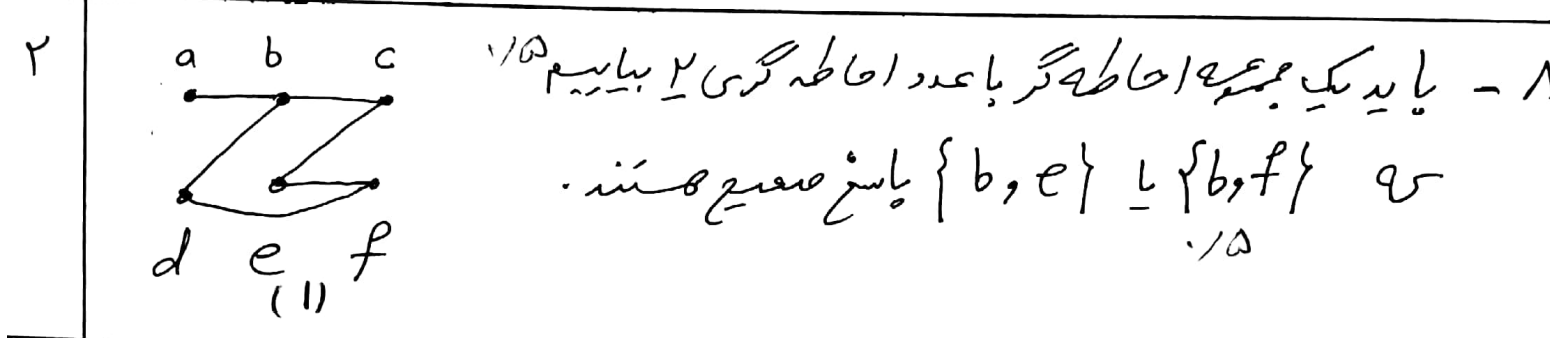 ۲
۸ - باید یک مجموعه احاطه گر با عدد احاطه گری ۲ بیابیم ۰/۵
که {b,f} یا {b,e} پاسخ صحیح هستند.
۰/۵
a b c
d e f
(۱)